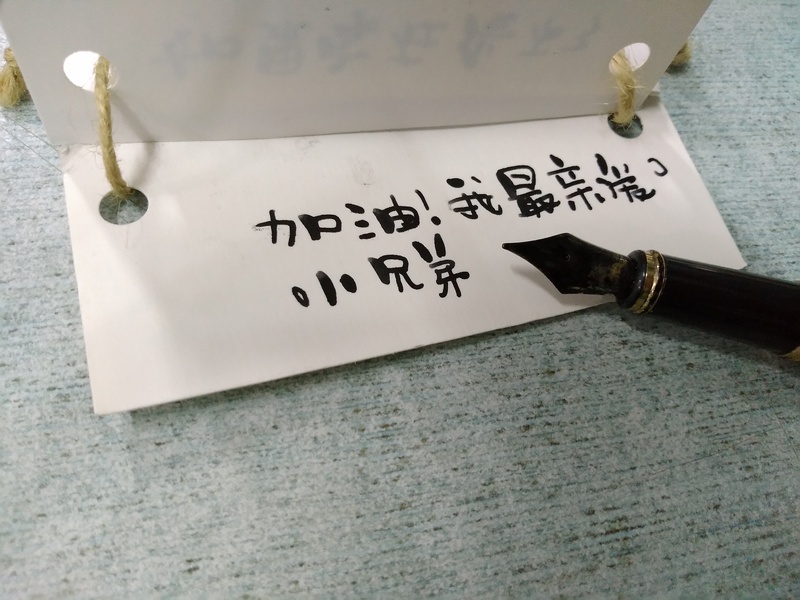 加油!我最亲爱
小兄弟